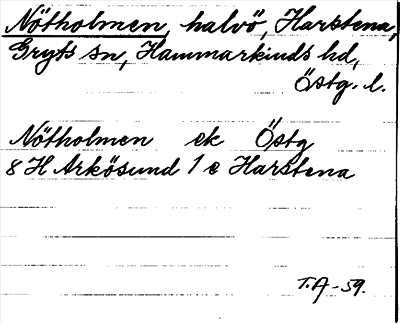 Nötholmen, halvö, Harstena,
Gryts sn, Hammarkinds hd,
Östg. l.
Nötholmen ek Östg
8 H Arkösund 1 e Harstena
T.A-59.